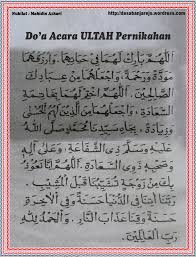 Nukilat : Nahidin Azhari
http://desabanjarejo.wordpress.com
Do'a Acara ULTAH Pernikahan
اَللّٰهُمَّ بَارِكْ لَهُمَا فِيْ حَيَاتِهِمَا. وَارْزُقْهُمَا
مَوَدَّةً وَرَحْمَةً، وَاجْعَلْهُمَا مِنْ عِبَادِكَ
الصَّالِحِيْنَ. اَللّٰهُمَّ اخْتِمْ لَهُمَا بِخَاتِمَةِ
السَّعَادَةِ، وَاجْعَلْهُمَا مِنَ الَّذِيْنَ لَهُمُ
الْحُسْنَى وَزِيَادَةٌ. بِجَاهِ سَيِّدِنَا مُحَمَّدٍ صَلَّى اللّٰهُ
عَلَيْهِ وَسَلَّمَ ذِي الشَّفَاعَةِ، وَعَلَى آلِهِ
وَصَحْبِهِ ذَوِي السَّعَادَةِ. اَللّٰهُمَّ إِنَّا نَعُوْذُ
بِكَ مِنْ زَوْجَةٍ تُشَيِّبُنَا قَبْلَ الْمَشِيْبِ.
رَبَّنَا آتِنَا فِي الدُّنْيَا حَسَنَةً وَفِي الْآخِرَةِ
حَسَنَةً وَقِنَا عَذَابَ النَّارِ. وَالْحَمْدُ لِلّٰهِ
رَبِّ الْعَالَمِيْنَ.